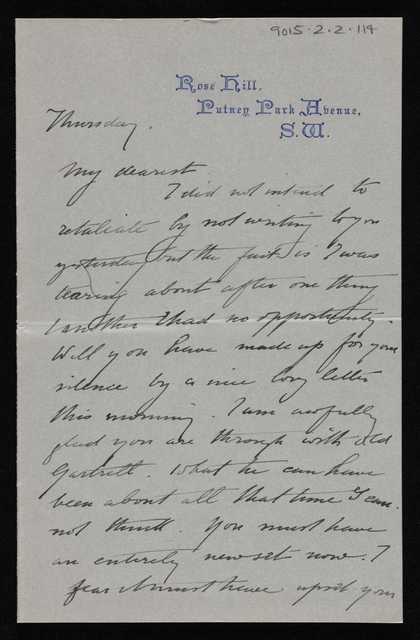 9015.2.2.114
Rose Hill.
Putney Park Avenue,
S.W.
Thursday.
My dearest
I did not intend to
retaliate by not writing to you
yesterday but the fact is I was
tearing about after one thing
& another & had no opportunity.
Well you have made up for your
silence by a nice long letter
this morning. I am awfully
glad you are through with old
Gartrell. What he can have
been about all that time I can
not think. You must have
an entirely new set now. I
fear it must have upset your